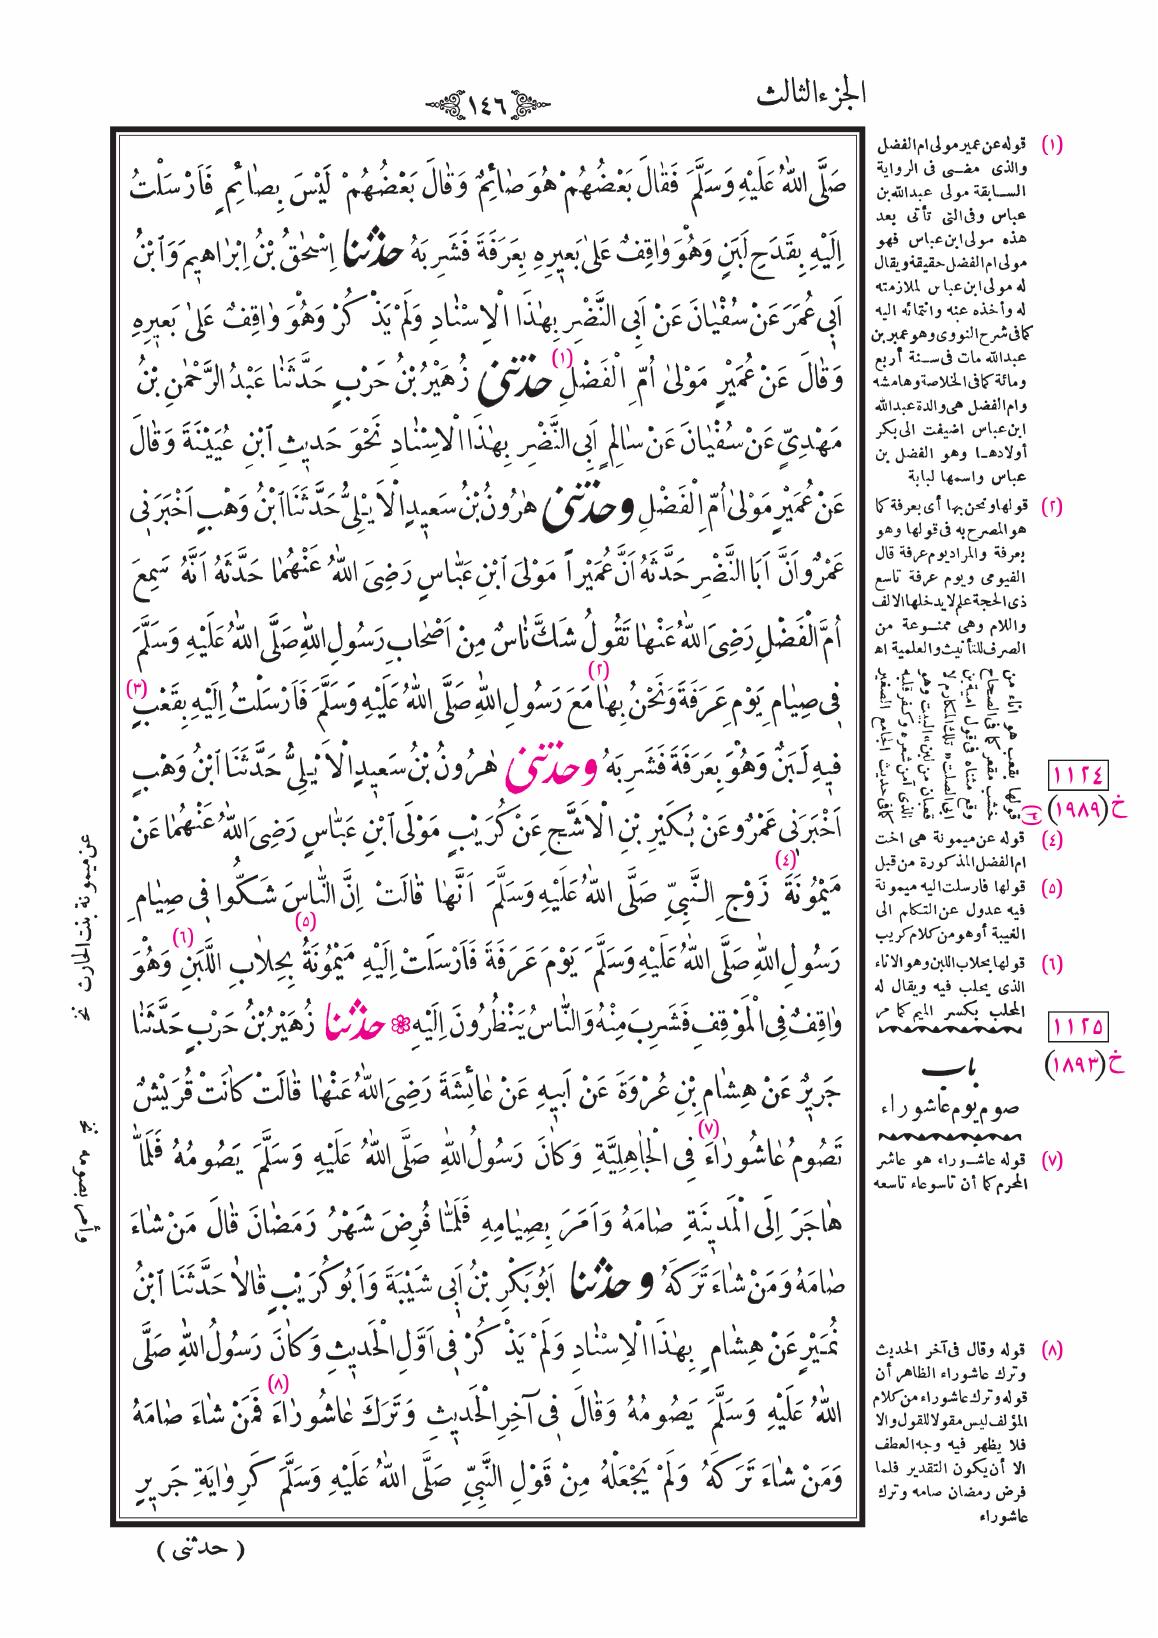 الجزء الثالث
١٤٦
صَلَّى اللهُ عَلَيْهِ وَسَلَّمَ فَقَالَ بَعْضُهُمْ هُوَ صَائِمٌ وَقَالَ بَعْضُهُمْ لَيْسَ بِصَائِمٍ فَاَرْسَلْتُ
اِلَيْهِ بِقَدَحِ لَبَنٍ وَهُوَ وَاقِفٌ عَلَى بَعِيرِهِ بِعَرَفَةَ فَشَرِبَهُ حدثنا اِسْحٰقُ بْنُ اِبْرَاهِيمَ وَابْنُ
اَبِي عُمَرَ عَنْ سُفْيَانَ عَنْ اَبِي النَّضْرِ بِهٰذَا الْاِسْنَادِ وَلَمْ يَذْكُرْ وَهُوَ وَاقِفٌ عَلَى بَعِيرِهِ
وَقَالَ عَنْ عُمَيْرٍ مَوْلَى اُمِّ الْفَضْلِ (١) حدثنى زُهَيْرُ بْنُ حَرْبٍ حَدَّثَنَا عَبْدُ الرَّحْمٰنِ بْنُ
مَهْدِيٍّ عَنْ سُفْيَانَ عَنْ سَالِمٍ اَبِي النَّضْرِ بِهٰذَا الْاِسْنَادِ نَحْوَ حَدِيثِ ابْنِ عُيَيْنَةَ وَقَالَ
عَنْ عُمَيْرٍ مَوْلَى اُمِّ الْفَضْلِ وحدثنى هٰرُونُ بْنُ سَعِيدٍ الْاَيْلِيُّ حَدَّثَنَا ابْنُ وَهْبٍ اَخْبَرَنِي
عَمْرٌو اَنَّ اَبَا النَّضْرِ حَدَّثَهُ اَنَّ عُمَيْراً مَوْلَى ابْنِ عَبَّاسٍ رَضِيَ اللهُ عَنْهُمَا حَدَّثَهُ اَنَّهُ سَمِعَ
اُمَّ الْفَضْلِ رَضِيَ اللهُ عَنْهَا تَقُولُ شَكَّ نَاسٌ مِنْ اَصْحَابِ رَسُولِ اللهِ صَلَّى اللهُ عَلَيْهِ وَسَلَّمَ
فِي صِيَامِ يَوْمِ عَرَفَةَ وَنَحْنُ بِهَا (٢) مَعَ رَسُولِ اللهِ صَلَّى اللهُ عَلَيْهِ وَسَلَّمَ فَاَرْسَلْتُ اِلَيْهِ بِقَعْبٍ (٣)
فِيهِ لَبَنٌ وَهُوَ بِعَرَفَةَ فَشَرِبَهُ وحدثنى هٰرُونُ بْنُ سَعِيدٍ الْاَيْلِيُّ حَدَّثَنَا ابْنُ وَهْبٍ
اَخْبَرَنِي عَمْرٌو عَنْ بُكَيْرِ بْنِ الْاَشَجِّ عَنْ كُرَيْبٍ مَوْلَى ابْنِ عَبَّاسٍ رَضِيَ اللهُ عَنْهُمَا عَنْ
مَيْمُونَةَ (٤) زَوْجِ النَّبِيِّ صَلَّى اللهُ عَلَيْهِ وَسَلَّمَ اَنَّهَا قَالَتْ اِنَّ النَّاسَ شَكُّوا فِي صِيَامِ
رَسُولِ اللهِ صَلَّى اللهُ عَلَيْهِ وَسَلَّمَ يَوْمَ عَرَفَةَ فَاَرْسَلَتْ اِلَيْهِ مَيْمُونَةُ (٥) بِحِلَابِ اللَّبَنِ (٦) وَهُوَ
وَاقِفٌ فِي الْمَوْقِفِ فَشَرِبَ مِنْهُ وَالنَّاسُ يَنْظُرُونَ اِلَيْهِ حدثنا زُهَيْرُ بْنُ حَرْبٍ حَدَّثَنَا
جَرِيرٌ عَنْ هِشَامِ بْنِ عُرْوَةَ عَنْ اَبِيهِ عَنْ عَائِشَةَ رَضِيَ اللهُ عَنْهَا قَالَتْ كَانَتْ قُرَيْشٌ
تَصُومُ عَاشُورَاءَ (٧) فِي الْجَاهِلِيَّةِ وَكَانَ رَسُولُ اللهِ صَلَّى اللهُ عَلَيْهِ وَسَلَّمَ يَصُومُهُ فَلَمَّا
هَاجَرَ اِلَى الْمَدِينَةِ صَامَهُ وَاَمَرَ بِصِيَامِهِ فَلَمَّا فُرِضَ شَهْرُ رَمَضَانَ قَالَ مَنْ شَاءَ
صَامَهُ وَمَنْ شَاءَ تَرَكَهُ وحدثنا اَبُو بَكْرِ بْنُ اَبِي شَيْبَةَ وَاَبُو كُرَيْبٍ قَالَا حَدَّثَنَا ابْنُ
نُمَيْرٍ عَنْ هِشَامٍ بِهٰذَا الْاِسْنَادِ وَلَمْ يَذْكُرْ فِي اَوَّلِ الْحَدِيثِ وَكَانَ رَسُولُ اللهِ صَلَّى
اللهُ عَلَيْهِ وَسَلَّمَ يَصُومُهُ وَقَالَ فِي آخِرِ الْحَدِيثِ وَتَرَكَ عَاشُورَاءَ (٨) فَمَنْ شَاءَ صَامَهُ
وَمَنْ شَاءَ تَرَكَهُ وَلَمْ يَجْعَلْهُ مِنْ قَوْلِ النَّبِيِّ صَلَّى اللهُ عَلَيْهِ وَسَلَّمَ كَرِوَايَةِ جَرِيرٍ
( حدثنى )
(١) قوله عن عمير مولى ام الفضل
والذى مضى فى الرواية
السابقة مولى عبدالله بن
عباس وفى التى تأتى بعد
هذه مولى ابن عباس فهو
مولى ام الفضل حقيقة ويقال
له مولى ابن عباس لملازمته
له وأخذه عنه وانتمائه اليه
كما فى شرح النووى وهو عمير بن
عبدالله مات فى سنة أربع
ومائة كما فى الخلاصة وهامشه
وام الفضل هى والدة عبدالله
ابن عباس اضيفت الى بكر
أولادها وهو الفضل بن
عباس واسمها لبابة
(٢) قولها ونحن بها أى بعرفة كما
هو المصرح به فى قولها وهو
بعرفة والمراد يوم عرفة قال
الفيومى ويوم عرفة تاسع
ذى الحجة علم لا يدخلها الالف
واللام وهى ممنوعة من
الصرف للتأنيث والعلمية اه
(٣) قولها بقعب هو اناء من
خشب مقعر كما فى الصحاح
وقع مثناه فى قول امية بن
ابى الصلت « تلك المكارم لا
قعبان من لبن » البيت وهو
الذى آمن شعره وكفر قلبه
كما فى حديث الجامع الصغير
١١٢٤
خ (١٩٨٩)
(٤) قوله عن ميمونة هى اخت
ام الفضل المذكورة من قبل
(٥) قولها فارسلت اليه ميمونة
فيه عدول عن التكلم الى
الغيبة أو هو من كلام كريب
(٦) قولها بحلاب اللبن وهو الاناء
الذى يحلب فيه ويقال له
المحلب بكسر الميم كما مر
١١٢٥
خ (١٨٩٣)
باب
صوم يوم عاشوراء
(٧) قوله عاشوراء هو عاشر
المحرم كما أن تاسوعاء تاسعه
(٨) قوله وقال فى آخر الحديث
وترك عاشوراء الظاهر أن
قوله وترك عاشوراء من كلام
المؤلف ليس مقولا للقول والا
فلا يظهر فيه وجه العطف
الا أن يكون التقدير فلما
فرض رمضان صامه وترك
عاشوراء
عن ميمونة بنت الحارث نخ
وأمر بصومه نخ